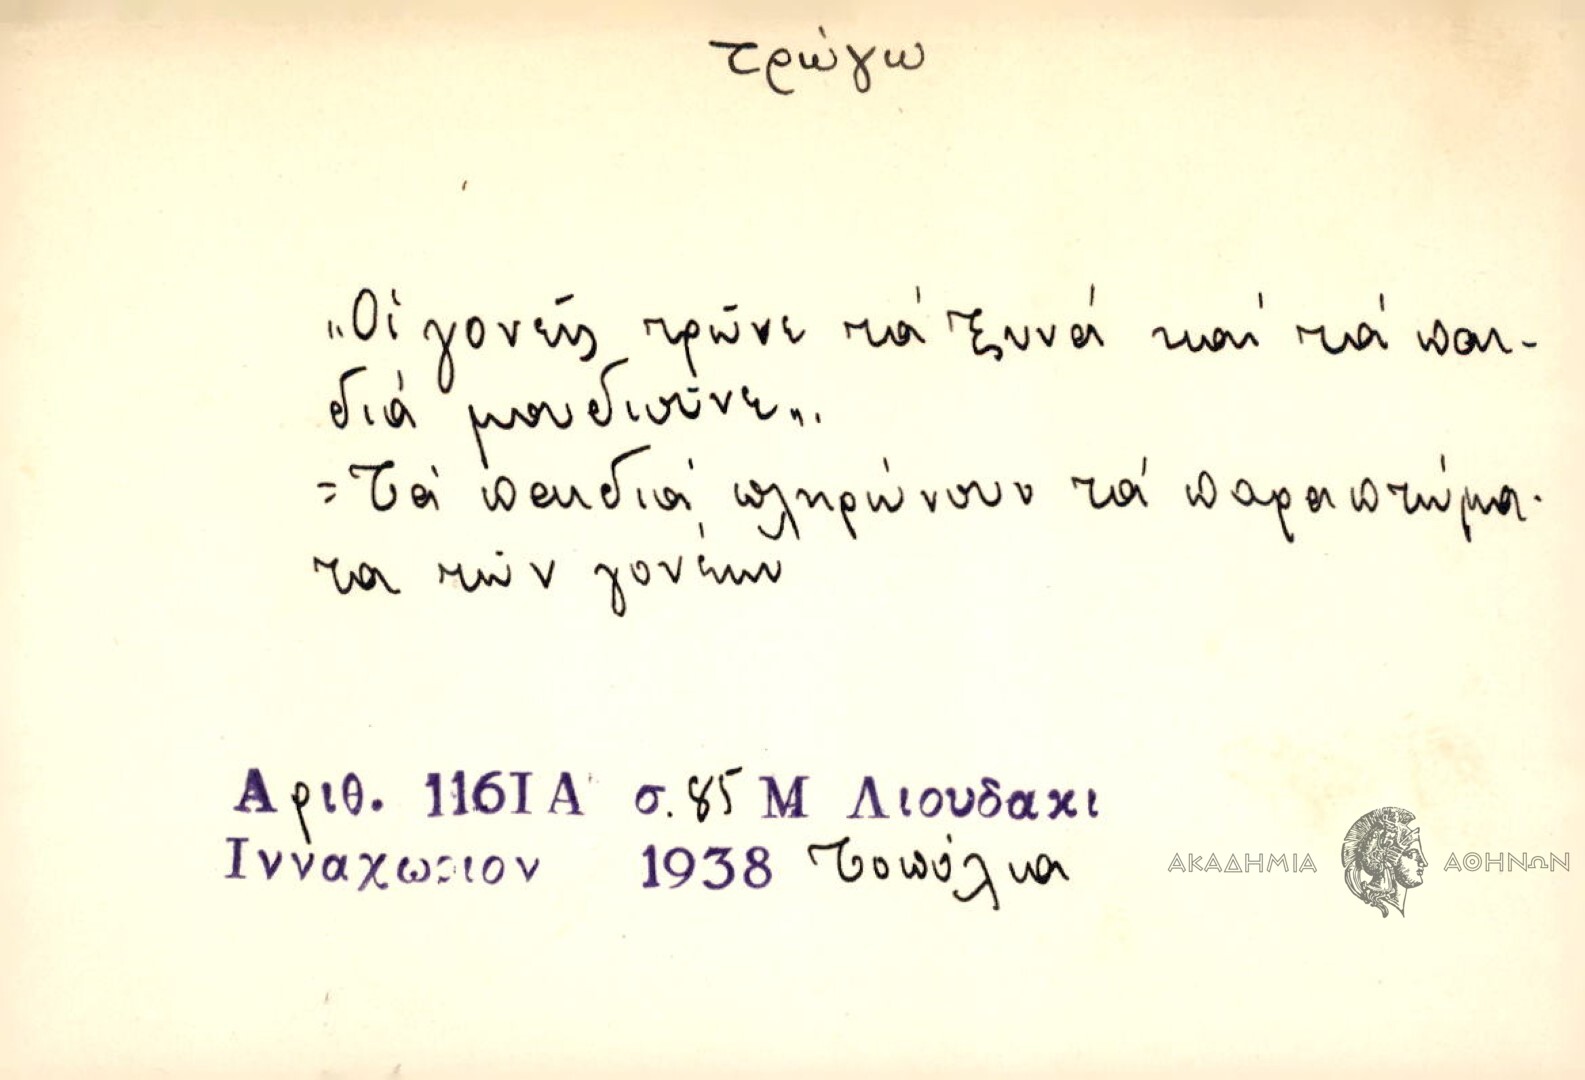 τρώγω
„Οἱ γονεῖς τρῶνε τά ξυνά καί τά παι-
διά μουδιοῦνε„.
= Τά παιδιά πληρώνουν τά παραπτώμα-
τα τῶν γονέων
Αριθ. 1161Α σ. 85 Μ Λιουδακι
Ινναχωριον 1938 Τοπόλια
ΑΚΑΔΗΜΙΑ ΑΘΗΝΩΝ